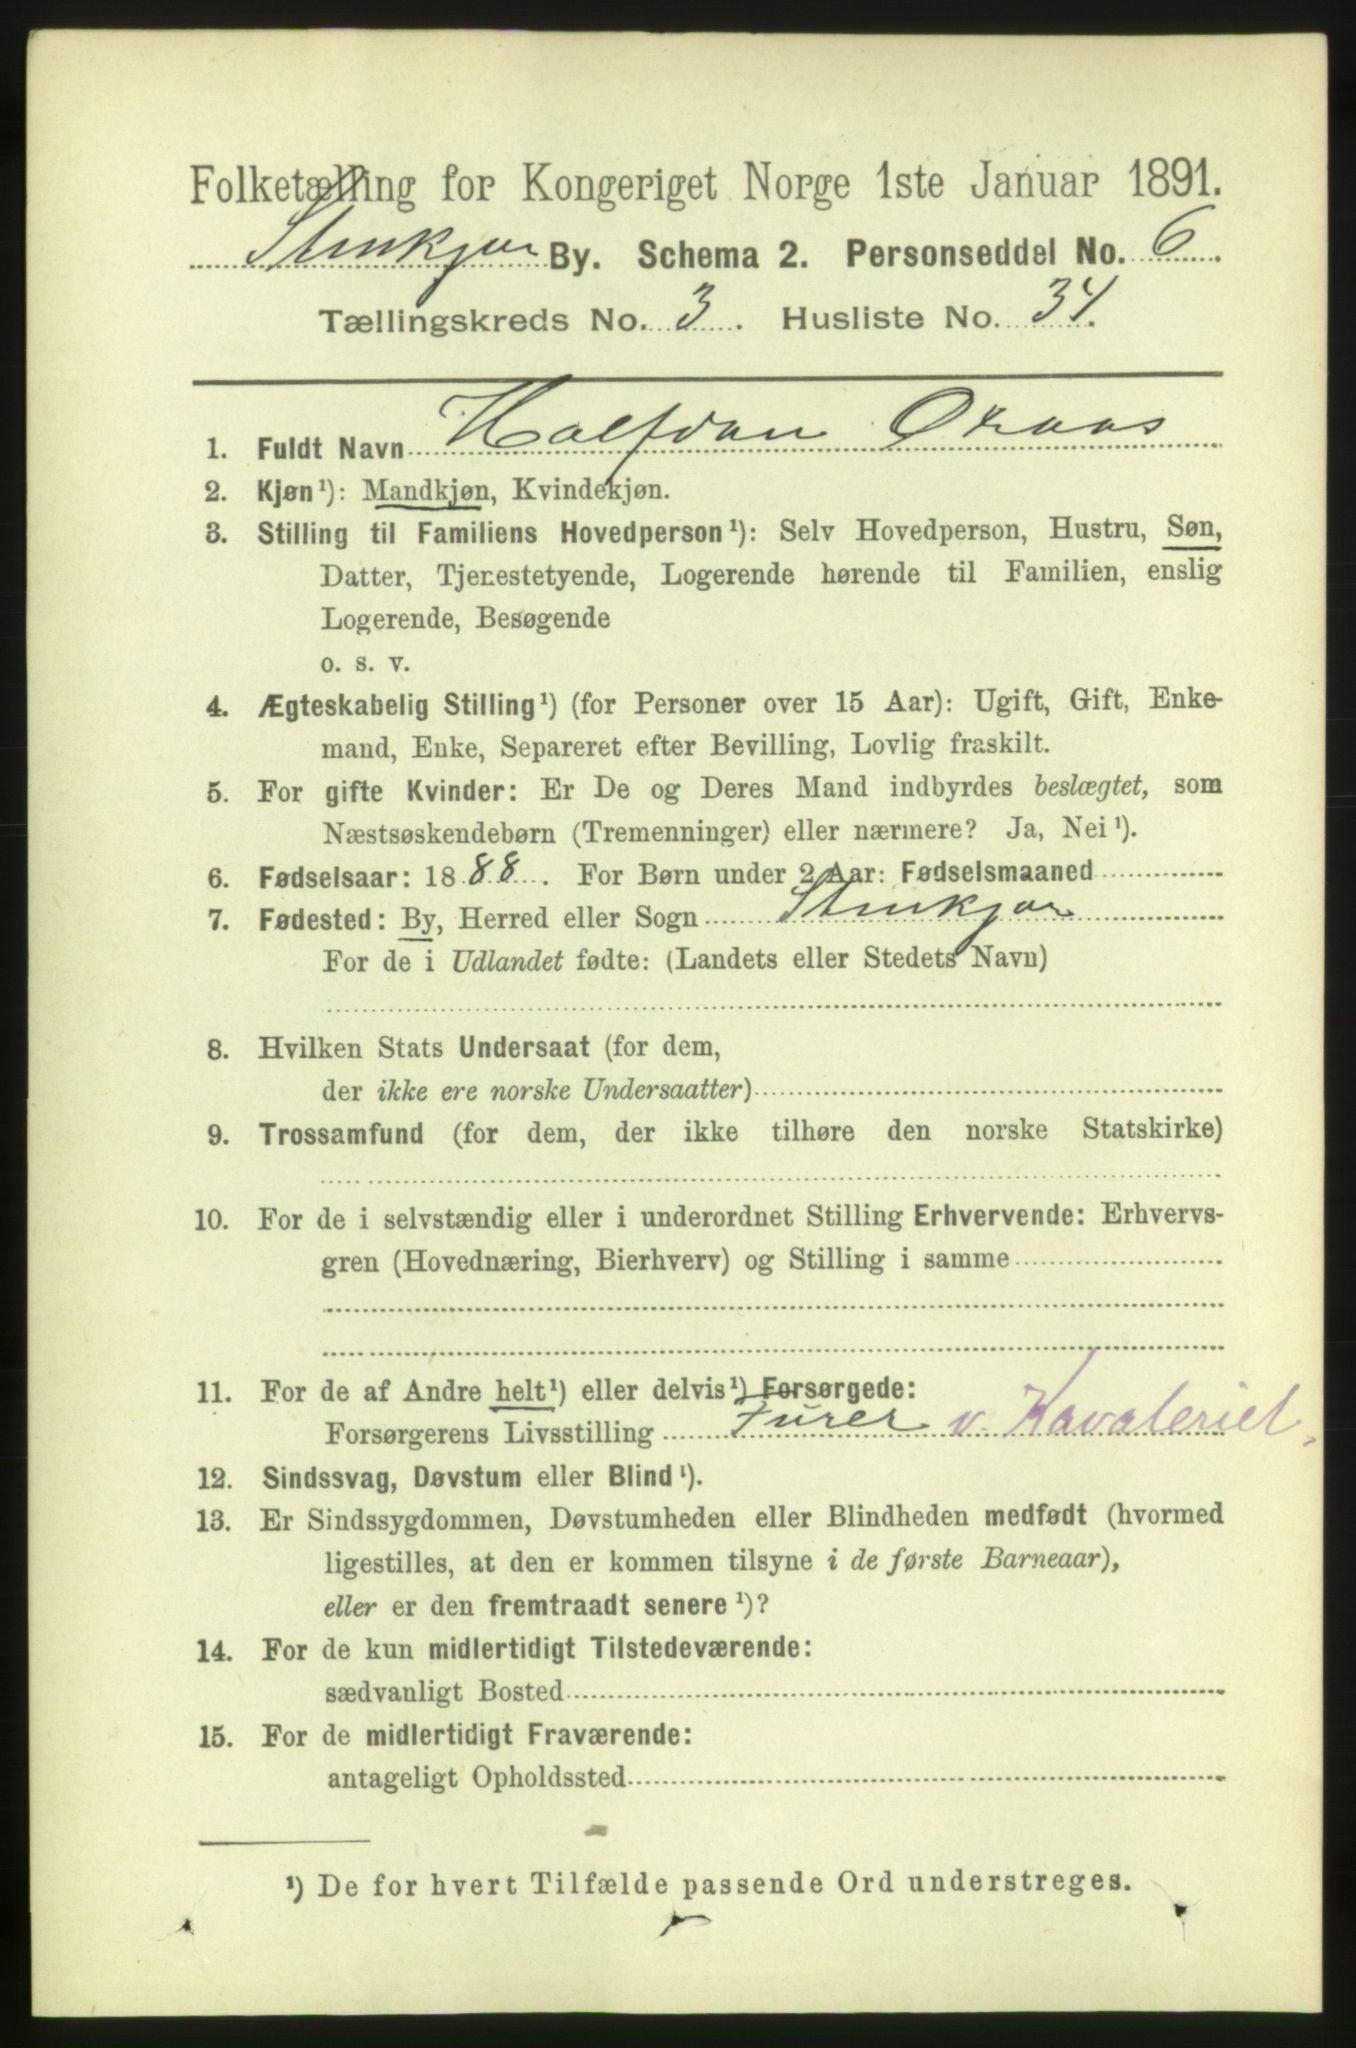 Folketælling for Kongeriget Norge 1ste Januar 1891.
Stenkjær By. Schema 2. Personseddel No. 6.
Tællingskreds No. 3. Husliste No. 34.
1. Fuldt Navn Halfdan Øraas
2. Kjøn¹): Mandkjøn, Kvindekjøn.
3. Stilling til Familiens Hovedperson¹): Selv Hovedperson, Hustru, Søn,
Datter, Tjenestetyende, Logerende hørende til Familien, enslig
Logerende, Besøgende
o. s. v.
4. Ægteskabelig Stilling¹) (for Personer over 15 Aar): Ugift, Gift, Enke-
mand, Enke, Separeret efter Bevilling, Lovlig fraskilt.
5. For gifte Kvinder: Er De og Deres Mand indbyrdes beslægtet, som
Næstsøskendebørn (Tremenninger) eller nærmere? Ja, Nei¹).
6. Fødselsaar: 1888. For Børn under 2 Aar: Fødselsmaaned
7. Fødested: By, Herred eller Sogn Stenkjær
For de i Udlandet fødte: (Landets eller Stedets Navn)
8. Hvilken Stats Undersaat (for dem,
der ikke ere norske Undersaatter)
9. Trossamfund (for dem, der ikke tilhøre den norske Statskirke)
10. For de i selvstændig eller i underordnet Stilling Erhvervende: Erhvervs-
gren (Hovednæring, Bierhverv) og Stilling i samme
11. For de af Andre helt¹) eller delvis¹) Forsørgede:
Forsørgerens Livsstilling Furer v. Kavaleriet,
12. Sindssvag, Døvstum eller Blind¹).
13. Er Sindssygdommen, Døvstumheden eller Blindheden medfødt (hvormed
ligestilles, at den er kommen tilsyne i de første Barneaar),
eller er den fremtraadt senere¹)?
14. For de kun midlertidigt Tilstedeværende:
sædvanligt Bosted
15. For de midlertidigt Fraværende:
antageligt Opholdssted
¹) De for hvert Tilfælde passende Ord understreges.